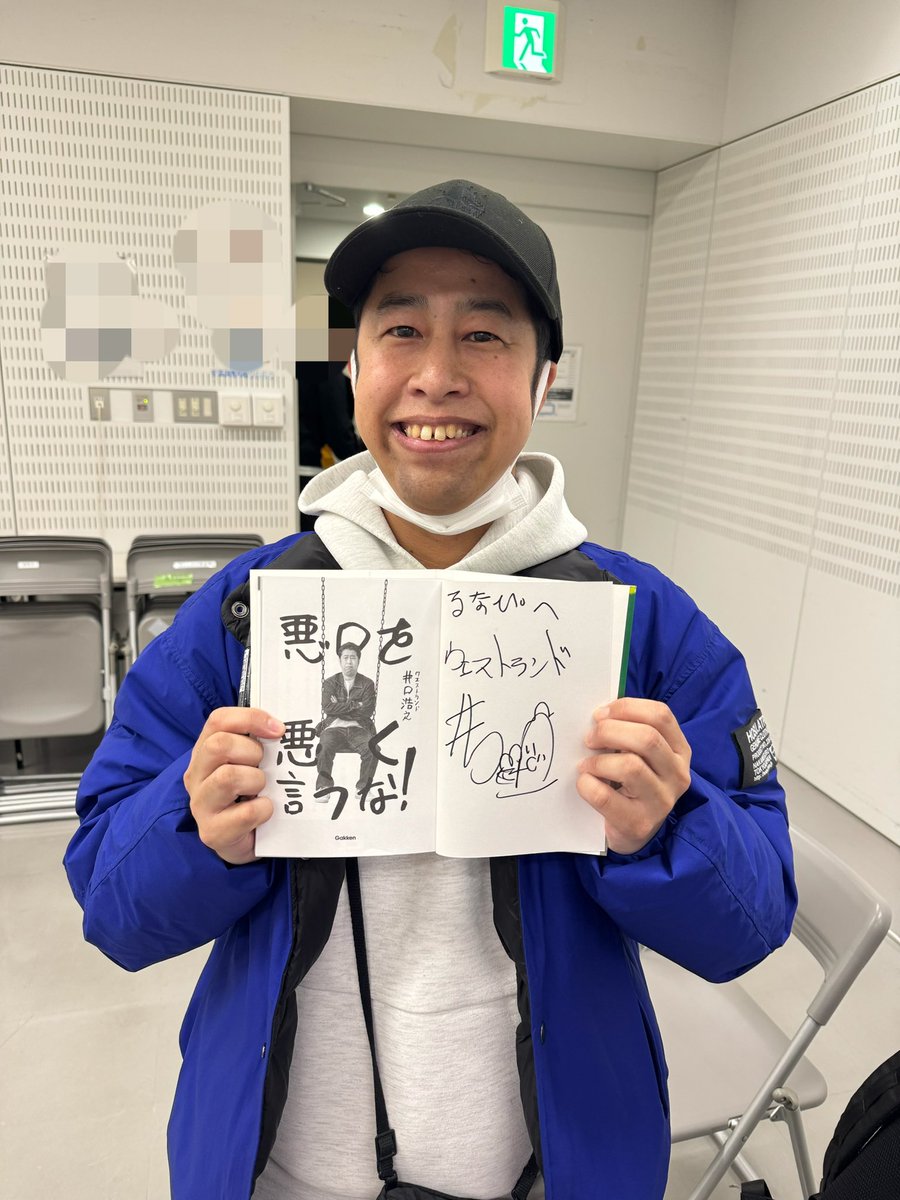 悪口を
ウエストランド
井口浩之
悪く
言うな!
Gakken
るなぴへ
ウエストランド
井口